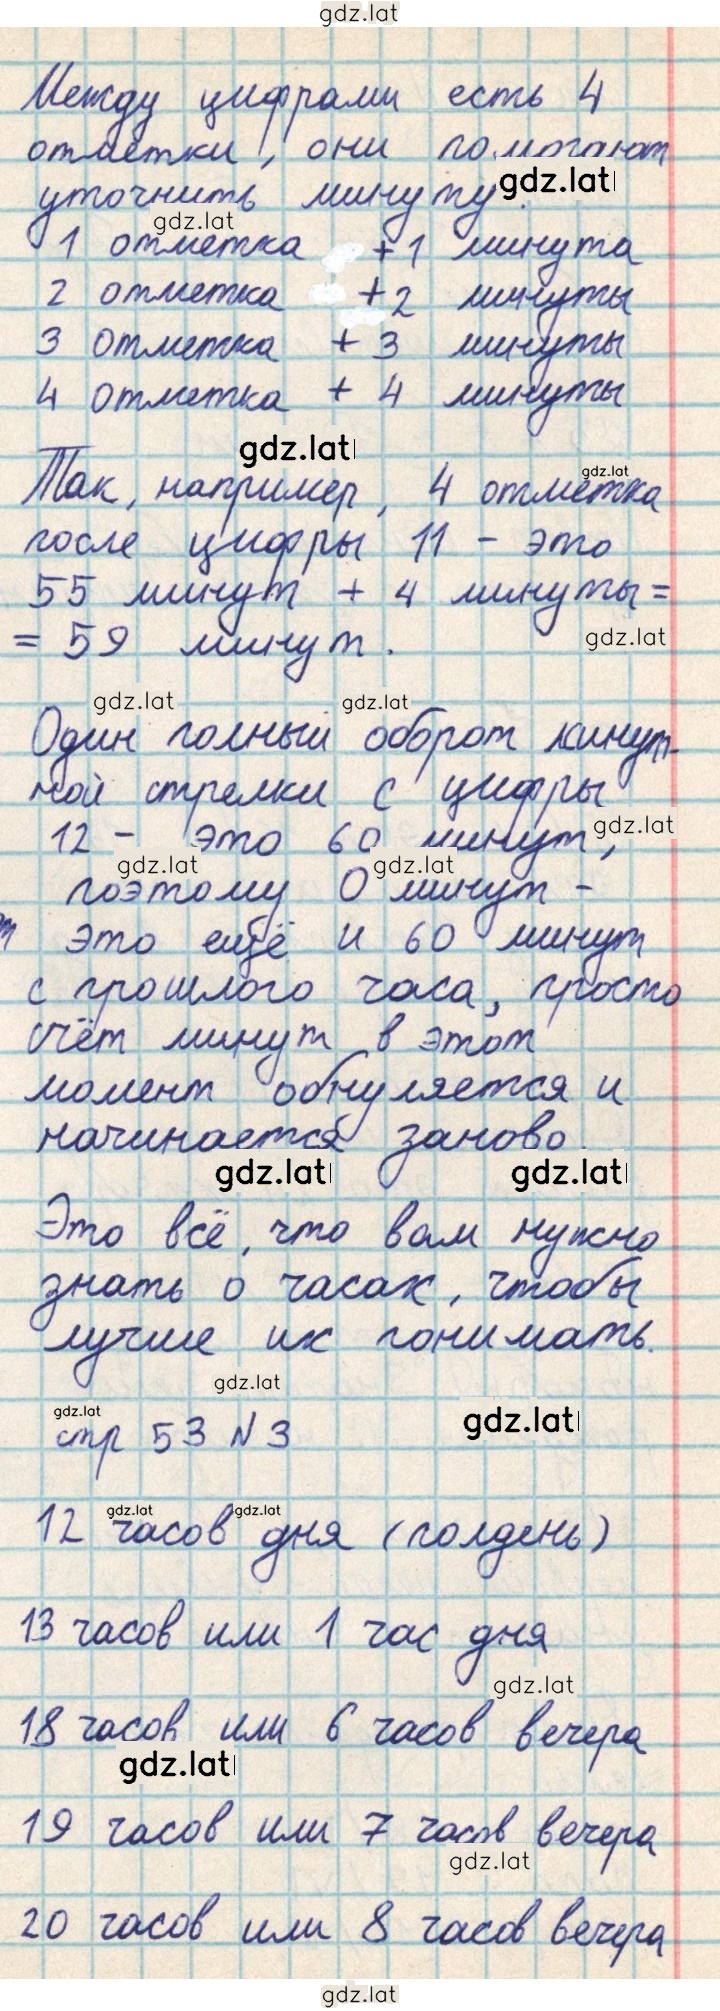 gdz.lat
Между цифрами есть 4
отметки, они помогают
gdz.lat
уточнить минуту.
gdz.lat
1 отметка +1 минута
2 отметка +2 минуты
3 отметка +3 минуты
4 отметка + 4 минуты
gdz.lat
gdz.lat
Так, например, 4 отметка
после цифры 11 - это
55 минут + 4 минуты=
= 59 минут.
gdz.lat
gdz.lat gdz.lat
Один полный оборот минут-
ной стрелки с цифры
gdz.lat
12 - это 60 минут,
gdz.lat gdz.lat
поэтому 0 минут -
это ещё и 60 минут
с прошлого часа, просто
счёт минут в этот
момент обнуляется и
начинается заново.
gdz.lat gdz.lat
Это всё, что вам нужно
знать о часах, чтобы
лучше их понимать.
gdz.lat
gdz.lat gdz.lat
стр 53 №3
gdz.lat gdz.lat
12 часов дня (полдень)
13 часов или 1 час дня
gdz.lat
18 часов или 6 часов вечера
gdz.lat
19 часов или 7 часов вечера
gdz.lat
20 часов или 8 часов вечера
gdz.lat